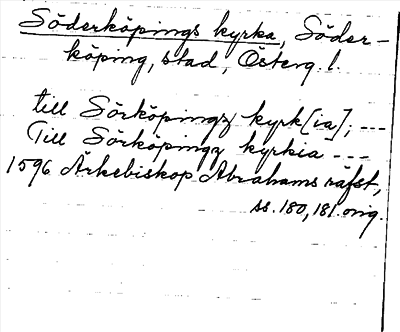 Söderköpings kyrka, Söder-
köping, stad, Österg.l.
till Sörköpingz kyrk[ia]; ---
Till Sörköpingz kyrkia ---
1596 Ärkebiskop Abrahams räfst,
ss. 180, 181. orig.